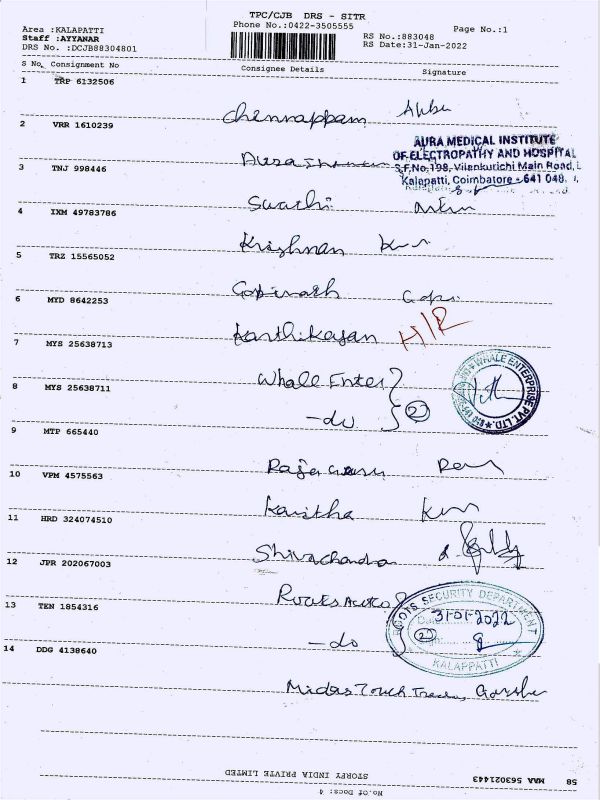 TPC/CJB DRS - SITR
Area :KALAPATTI Phone No.:0422-3505555 Page No.:1
Staff :AYYANAR RS No.:883048
DRS No. :DCJB88304801 RS Date:31-Jan-2022
S No. Consignment No Consignee Details Signature
1 TRP 6132506
Chennappam
2 VRR 1610239
AURA MEDICAL INSTITUTE
OF ELECTROPATHY AND HOSPITAL
S.F.No,198, Vilankurichi Main Road,
Kalapatti, Coimbatore - 641 048.
3 TNJ 998446
Swathi
4 IXM 49783786
Krishnan
5 TRZ 15565052
Gopinath Gopi
6 MYD 8642253
Karthikayan H/R
7 MYS 25638713
Whale Enter
WHALE ENTERPRISE PVT. LTD.
8 MYS 25638711
-do 2
9 MTP 665440
10 VPM 4575563
Kavitha
11 HRD 324074510
Shivachandra
12 JPR 202067003
Roots Auto
ROOTS SECURITY DEPARTMENT
31-01-2022
13 TEN 1854316
-do 2
KALAPPATTI
14 DDG 4138640
Midas Touch
58 MAA 563021443
STORFY INDIA PRIVATE LIMITED
No.Of Docs: 4